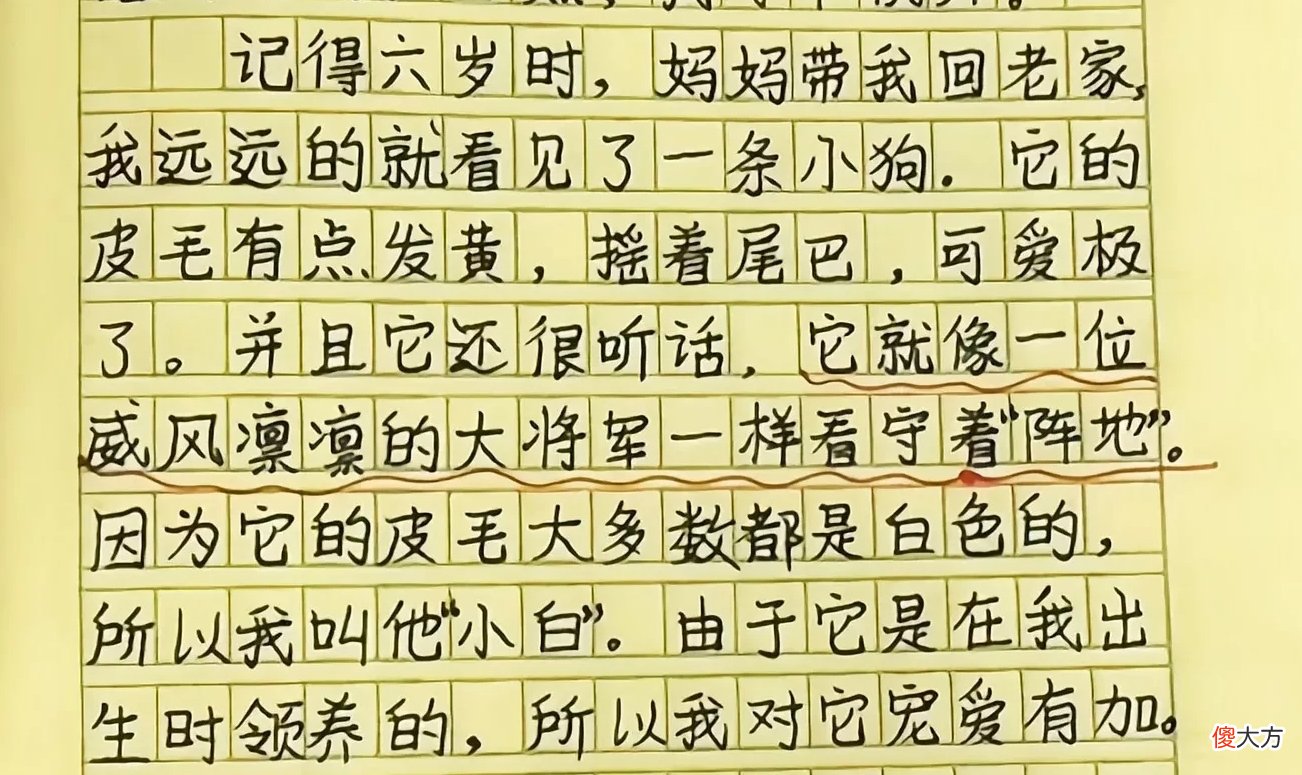 记得六岁时，妈妈带我回老家，
我远远的就看见了一条小狗．它的
皮毛有点发黄，摇着尾巴，可爱极
了。并且它还很听话，它就像一位
威风凛凛的大将军一样看守着“阵地”。
因为它的皮毛大多数都是白色的，
所以我叫他“小白”。由于它是在我出
生时领养的，所以我对它宠爱有加。
傻大方